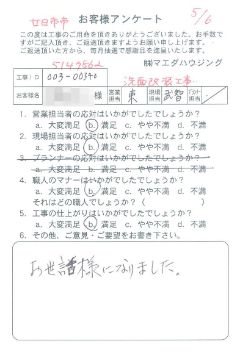 廿日市市
お客様アンケート
5/6
この度は工事のご用命を頂きありがとうございました。お手数で
すがご記入頂き、ご返送頂きますようお願い申し上げます。
ご返送頂きました方から、毎月抽選で感謝品を送ります。
㈱マエダハウジング
工事ID 003-00340
洗面改装工事
お客様名 様 営業担当 東 現場担当 武智
1. 営業担当者の応対はいかがでしたでしょうか?
a. 大変満足 b. 満足 c. やや不満 d. 不満
2. 現場担当者の応対はいかがでしたでしょうか?
a. 大変満足 b. 満足 c. やや不満 d. 不満
3. プランナーの応対はいかがでしたでしょうか?
a. 大変満足 b. 満足 c. やや不満 d. 不満
4. 職人のマナーはいかがでしたでしょうか?
a. 大変満足 b. 満足 c. やや不満 d. 不満
それはどの職人でしょうか?( )
5. 工事の仕上がりはいかがでしたでしょうか?
a. 大変満足 b. 満足 c. やや不満 d. 不満
6. その他、ご意見・ご要望をお書き下さい。
お世話様になりました。